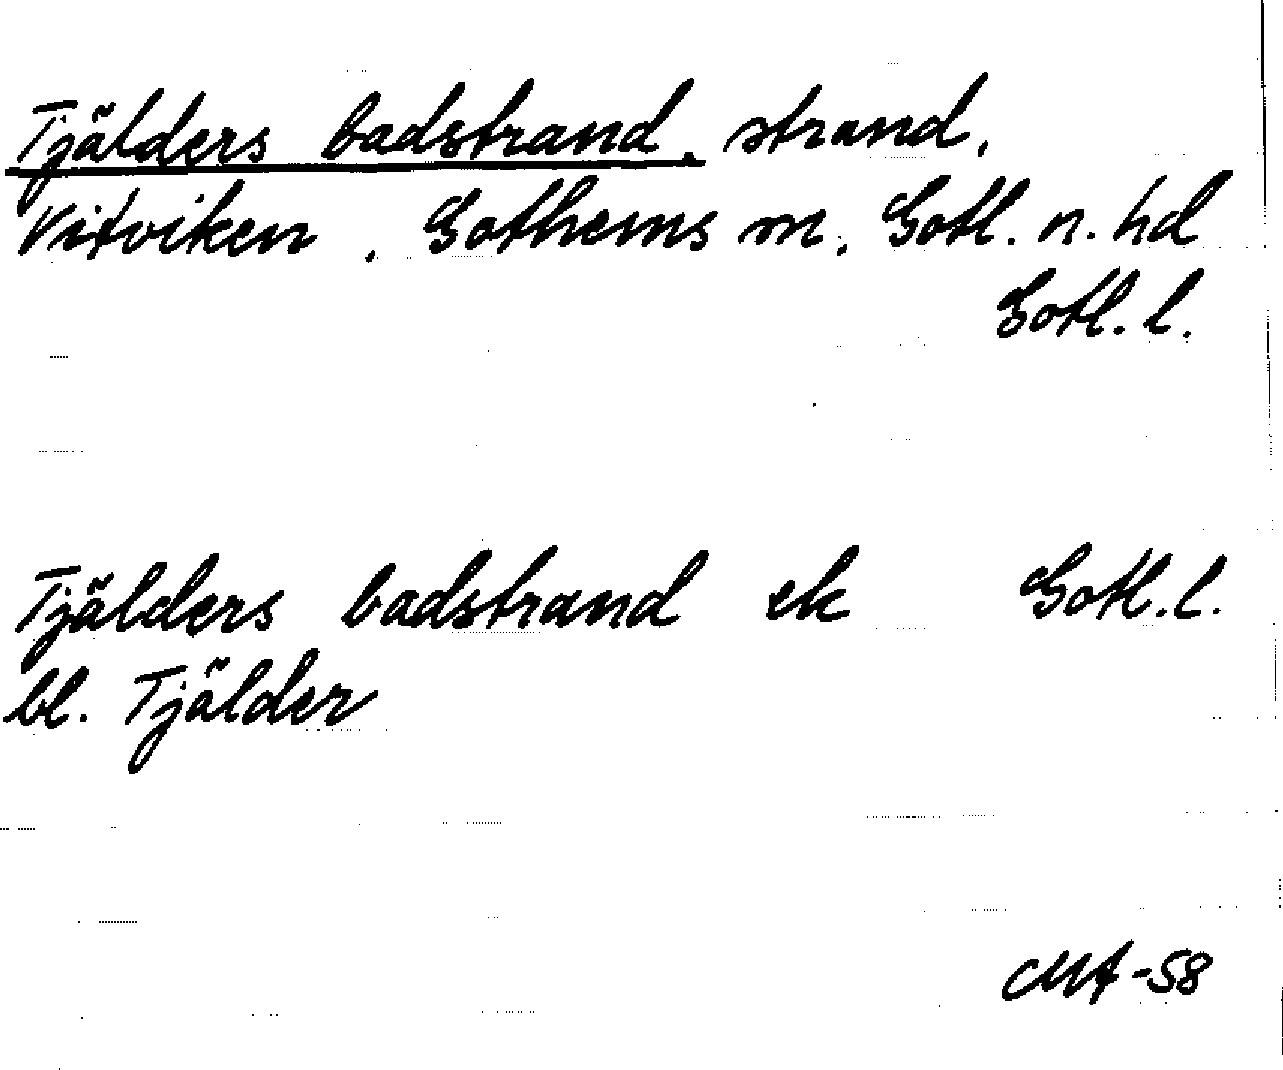 Tjälders badstrand, strand,
Vitviken, Gothems sn, Gotl. n. hd
Gotl. l.
Tjälders badstrand ek Gotl. l.
bl. Tjälder
MA-58